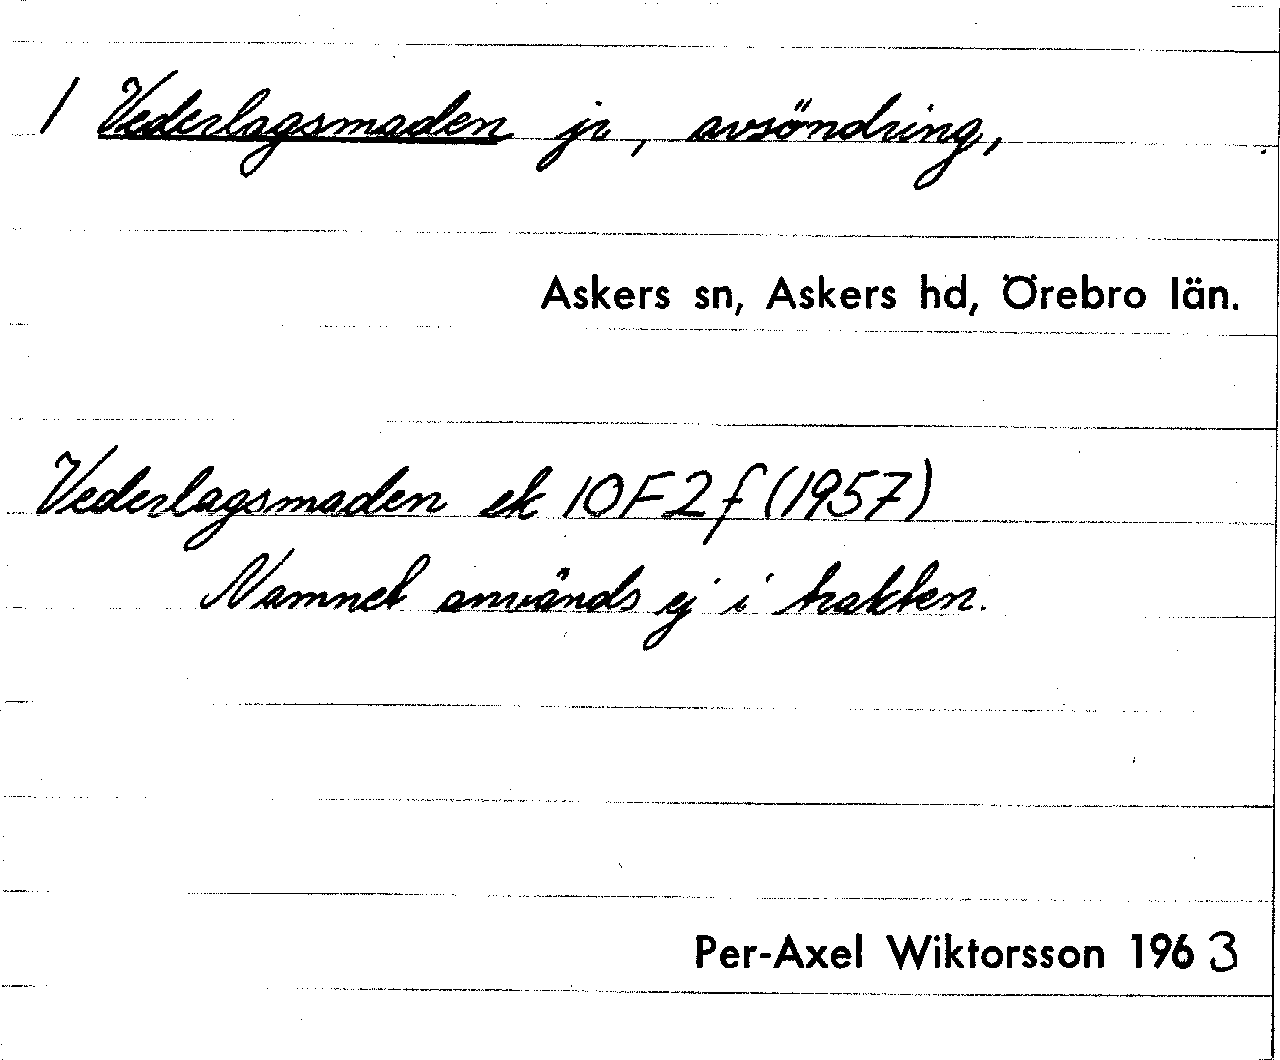 / Vederlagsmaden jr, avsöndring,
Askers sn, Askers hd, Örebro län.
Vederlagsmaden ek 10F2f (1957)
Namnet används ej i trakten.
Per-Axel Wiktorsson 1963